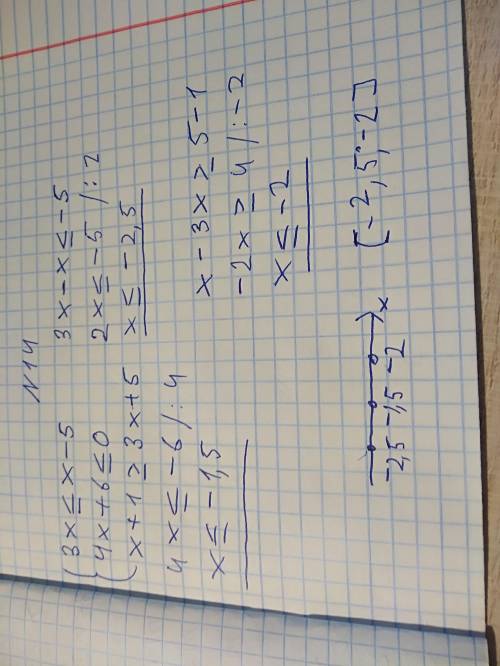 N14
{ 3x ≤ x-5
4x+6 ≤ 0
x+1 ≥ 3x+5
3x-x ≤ -5
2x ≤ -5 /:2
x ≤ -2,5
4x ≤ -6 /:4
x ≤ -1,5
x-3x ≥ 5-1
-2x ≥ 4 /:-2
x ≤ -2
-2,5 -1,5 -2 x
[-2,5; -2]